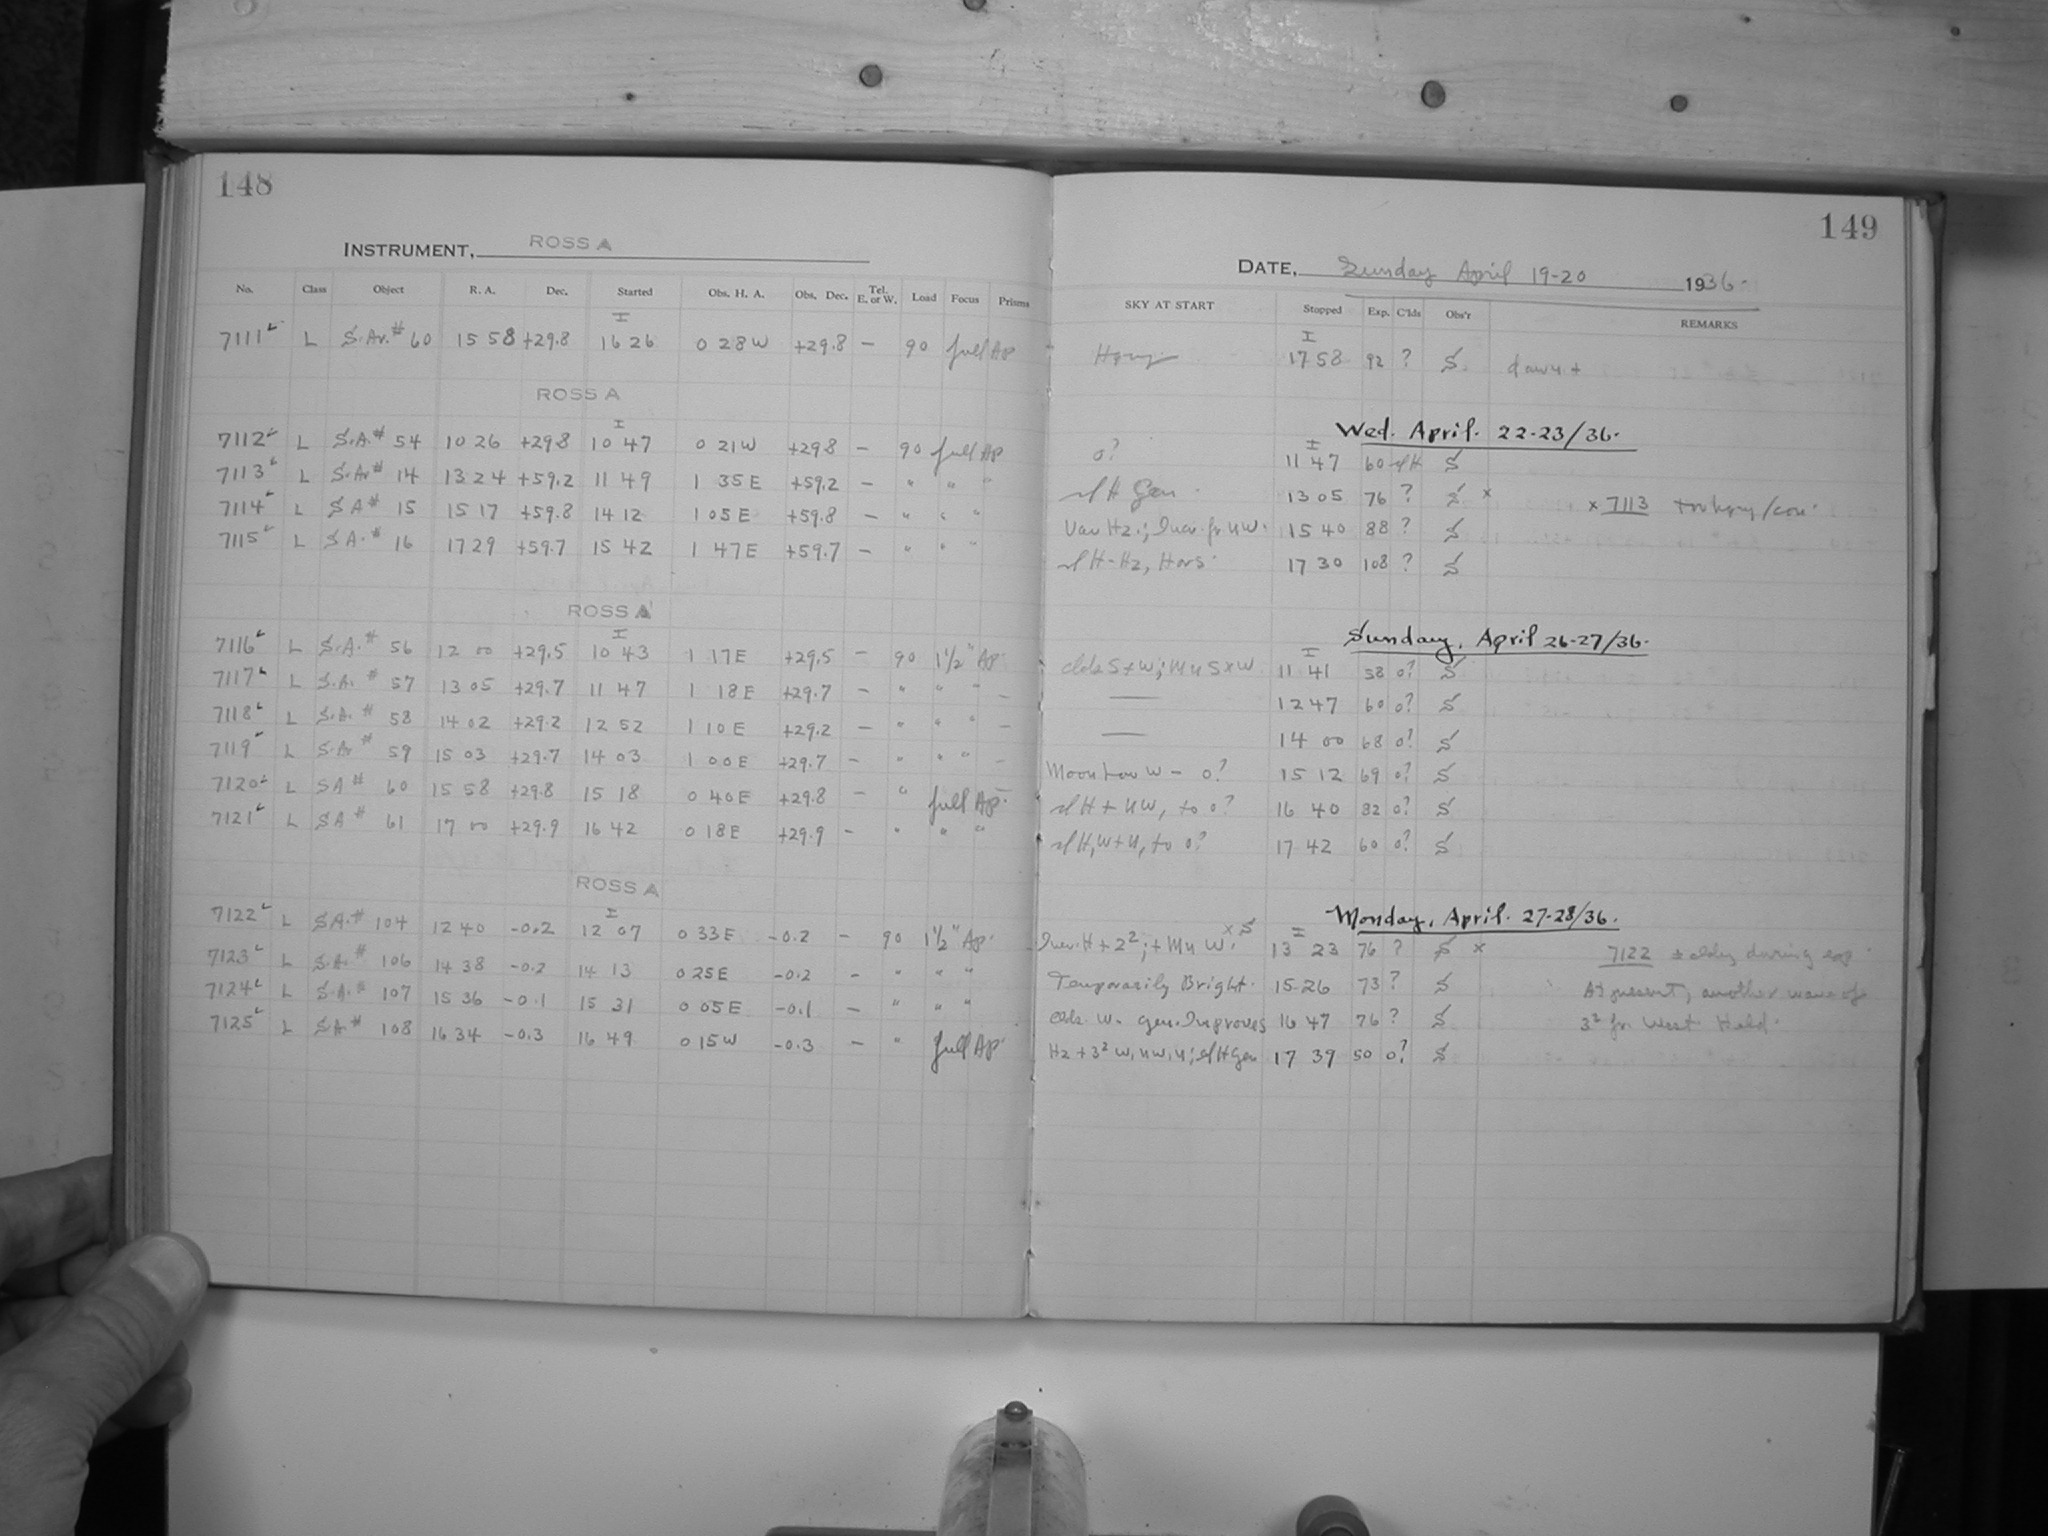 148
INSTRUMENT, ROSS A
No. Class Object R. A. Dec. Started Obs. H. A. Obs. Dec. Tel. E. or W. Load Focus Prisms
I
7111 L S.Ar.# 60 15 58 +29.8 16 26 0 28 W +29.8 — 90 full Ap
ROSS A
I
7112 L S.A.# 54 10 26 +29.8 10 47 0 21 W +29.8 — 90 full Ap
7113 L S.Ar# 14 13 24 +59.2 11 49 1 35 E +59.2 — " " "
7114 L S A# 15 15 17 +59.8 14 12 1 05 E +59.8 — " " "
7115 L S A.# 16 17 29 +59.7 15 42 1 47 E +59.7 — " " "
ROSS A
I
7116 L S.A.# 56 12 00 +29.5 10 43 1 17 E +29.5 — 90 1½" Ap.
7117 L S.A. # 57 13 05 +29.7 11 47 1 18 E +29.7 — " " " —
7118 L S.A. # 58 14 02 +29.2 12 52 1 10 E +29.2 — " " " —
7119 L S.Ar # 59 15 03 +29.7 14 03 1 00 E +29.7 — " " " —
7120 L SA # 60 15 58 +29.8 15 18 0 40 E +29.8 — " full Ap.
7121 L SA # 61 17 00 +29.9 16 42 0 18 E +29.9 — " " "
ROSS A
I
7122 L SA.# 104 12 40 -0.2 12 07 0 33 E -0.2 — 90 1½" Ap.
7123 L S.A.# 106 14 38 -0.2 14 13 0 25 E -0.2 — " " "
7124 L S.A.# 107 15 36 -0.1 15 31 0 05 E -0.1 — " " "
7125 L SA# 108 16 34 -0.3 16 49 0 15 W -0.3 — " full Ap.
149
DATE, Sunday April 19-20 1936.
SKY AT START Stopped Exp. C'lds Obs'r REMARKS
I
17 58 92 ? S. dawn +
Wed. April. 22-23/36.
I
0? 11 47 60 slH S
slH Gen. 13 05 76 ? S x x 7113
Var Hz.; Incr. fr NW. 15 40 88 ? S
slH-Hz, Hors. 17 30 108 ? S
Sunday, April 26-27/36.
I
clds S+W; Mn S+W. 11 41 58 0? S
— 12 47 60 0? S
— 14 00 68 0? S
Moon Low W — 0? 15 12 69 0? S
slH + NW, to 0? 16 40 82 0? S
slH, W+N, to 0? 17 42 60 0? S
Monday, April. 27-28/36.
x S I
Incr. H + 2²; + Mn W. 13 23 76 ? S x 7122 + cldy during exp.
Temporarily Bright. 15 26 73 ? S At present, another wave of
clds. W. gen. Improves 16 47 76 ? S 3² fr West Held.
Hz + 3² W, NW, N; slH Gen 17 39 50 0? S